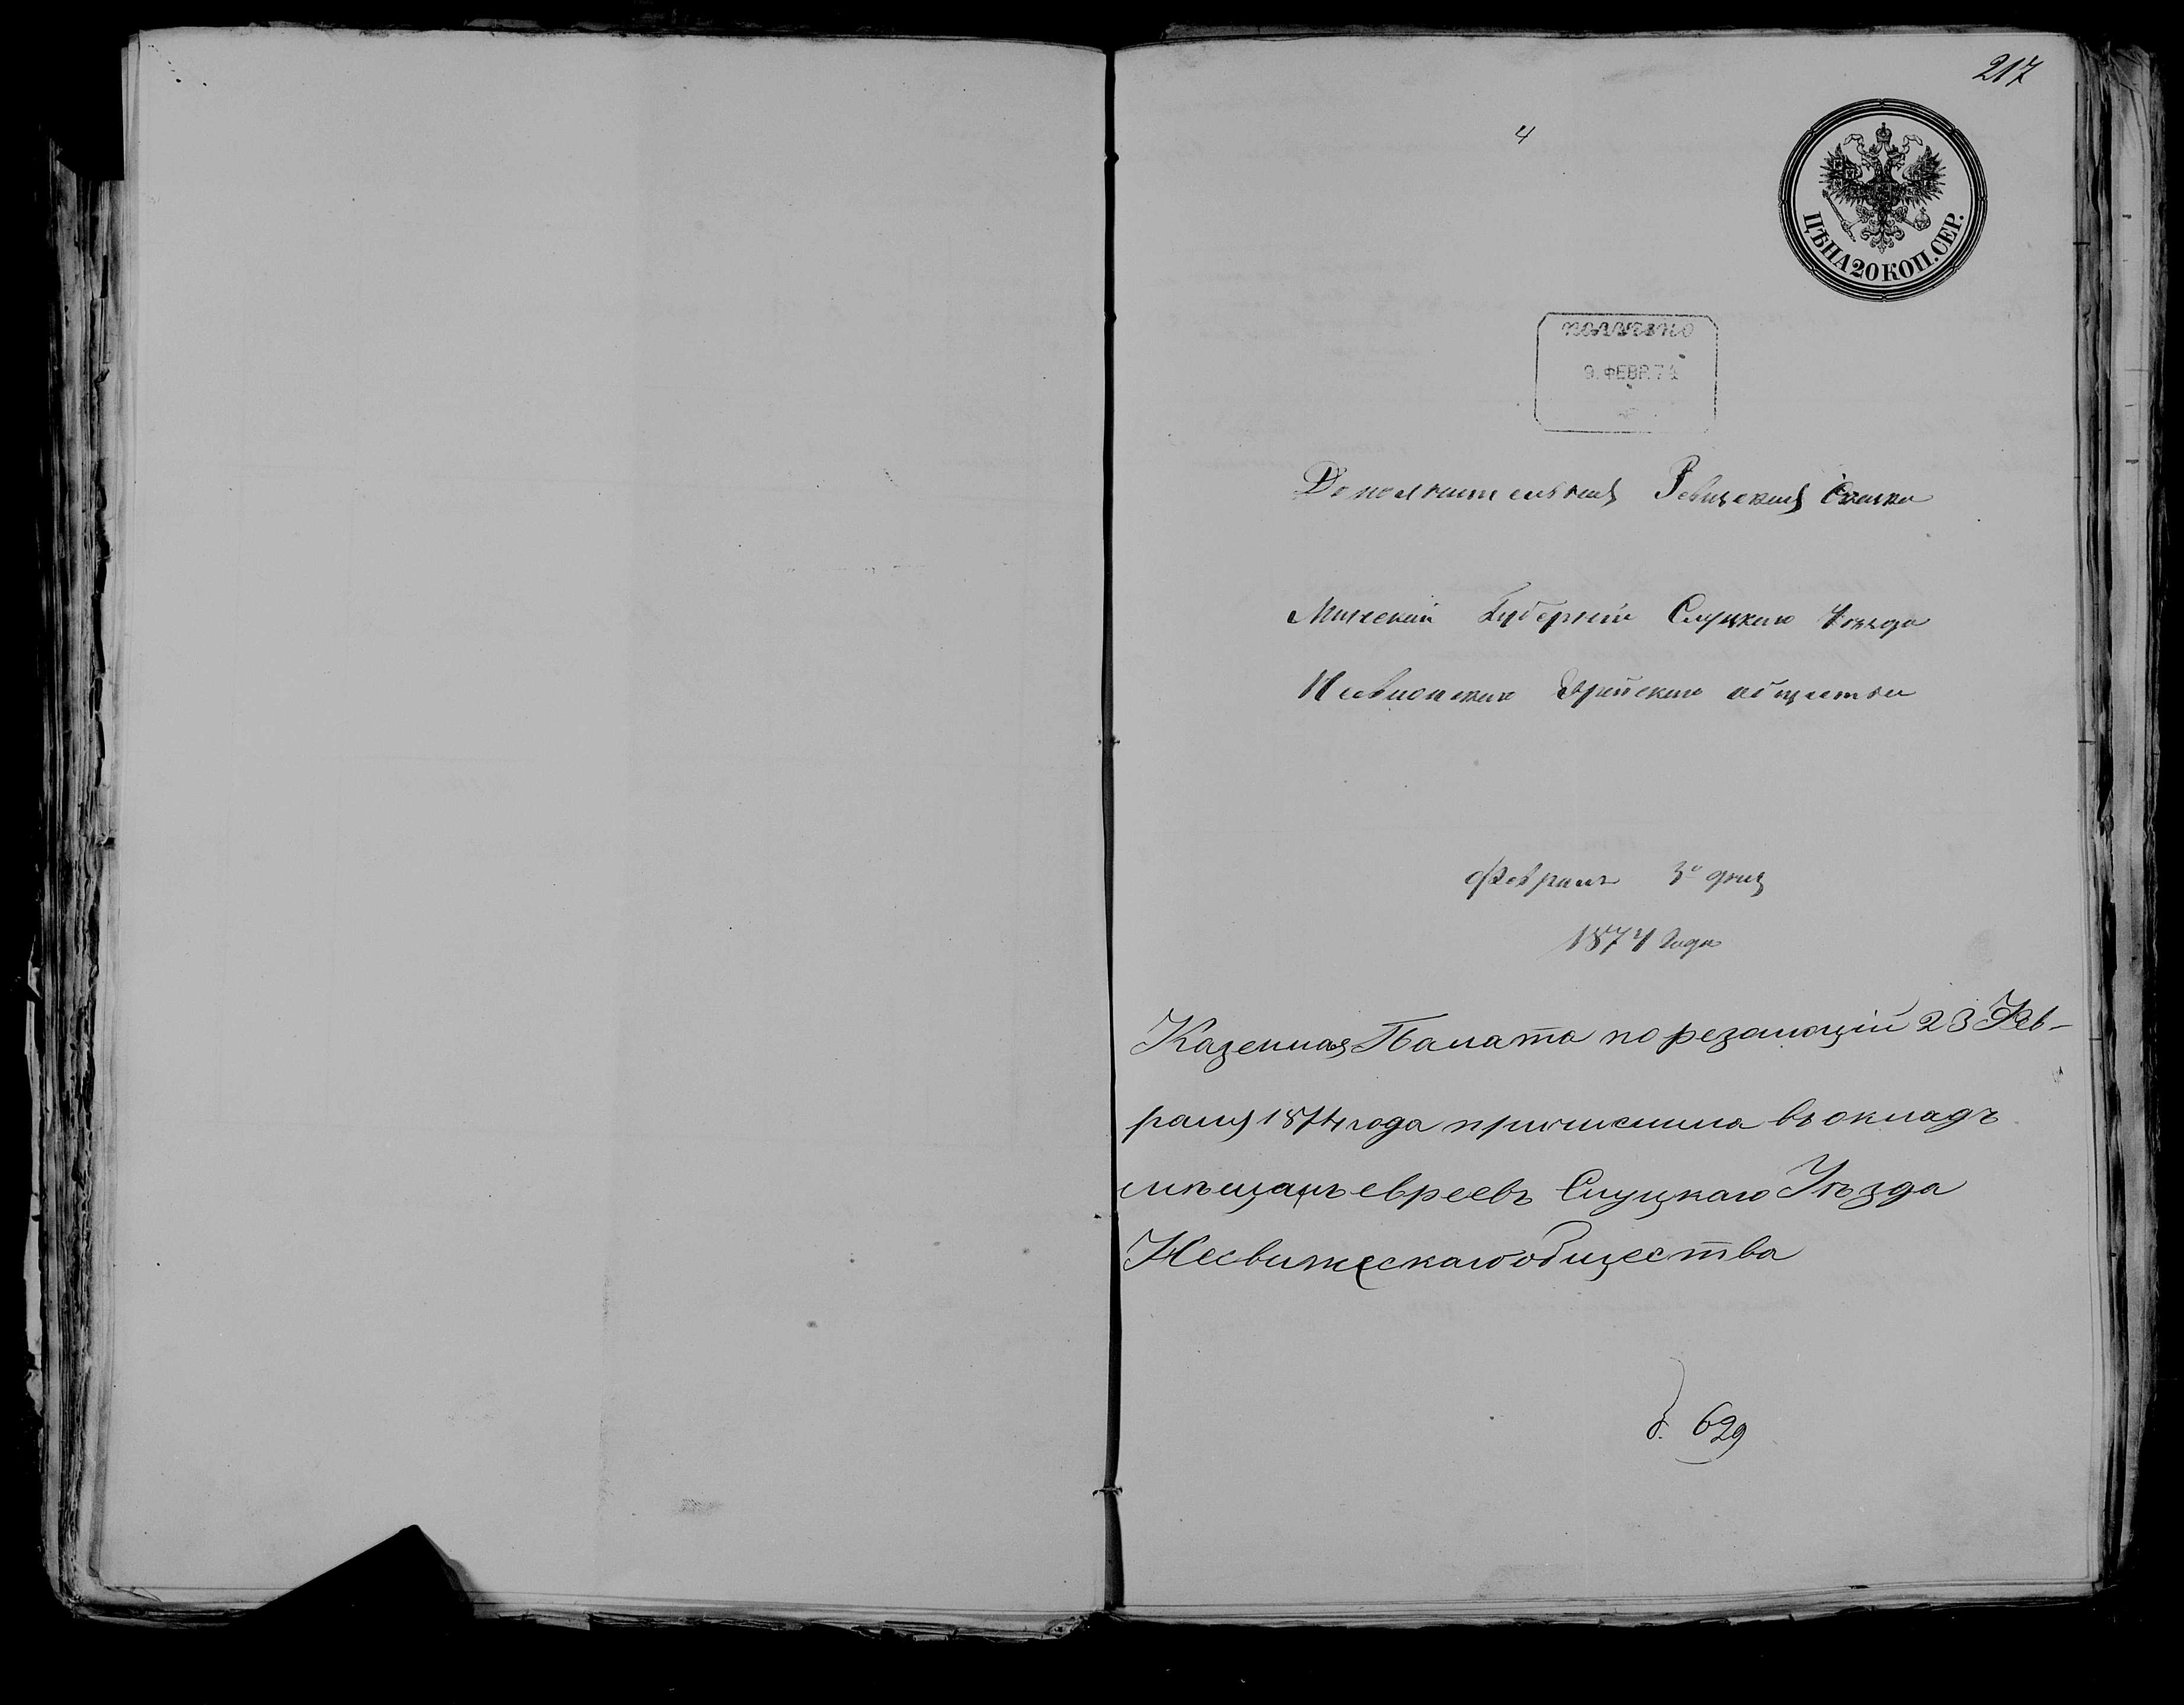 217
4
ЦѢНА 20 КОП. СЕР.
ПОЛУЧЕНО
9. ФЕВР. 74
Дополнительная Ревизская Сказка
Минской Губерніи Слуцкаго Уѣзда
Несвижскаго Еврейскаго общества
Февраля 3º дня
1874 Года
Казенная Палата по резолюціи 23 Фев-
раля 1874 года причислила въ окладъ
мѣщанъ евреевъ Слуцкаго Уѣзда
Несвижескаго общества
д. 629